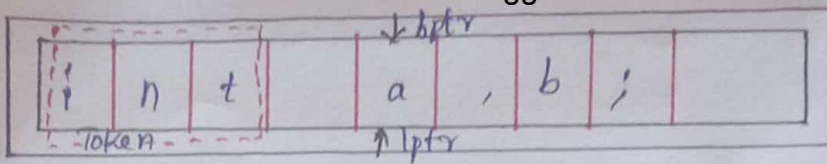 bptr
i n t a , b ;
Token lptr